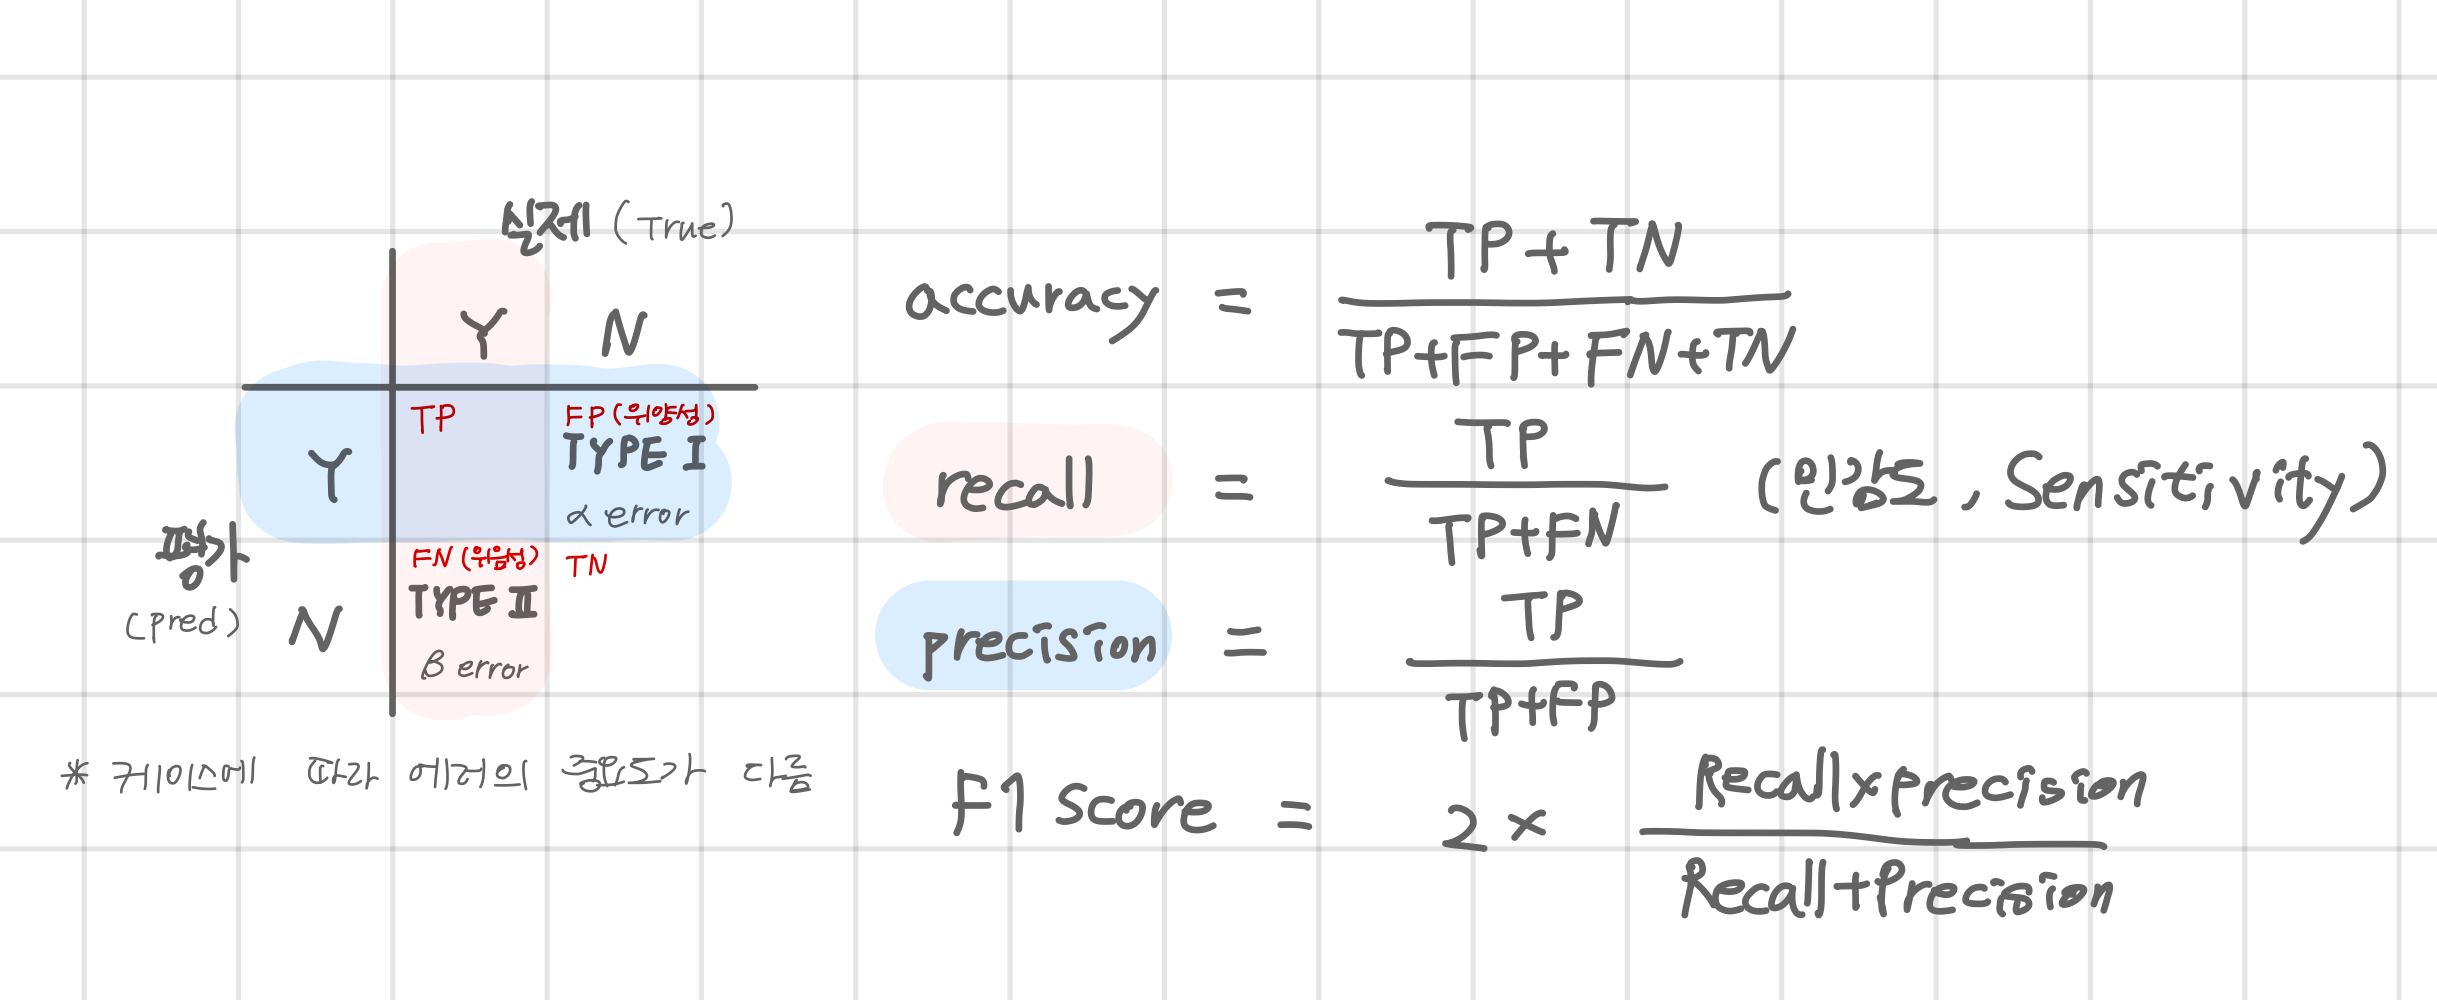 실제 (True)
Y N
TP FP(위양성)
TYPE I
Y
α error
평가
(pred)
FN(위음성) TN
TYPE II
N
β error
* 케이스에 따라 에러의 중요도가 다름
accuracy = TP + TN
TP+FP+FN+TN
recall = TP
TP+FN
(민감도, Sensitivity)
precision = TP
TP+FP
F1 score = 2 × Recall×precision
Recall+Precision